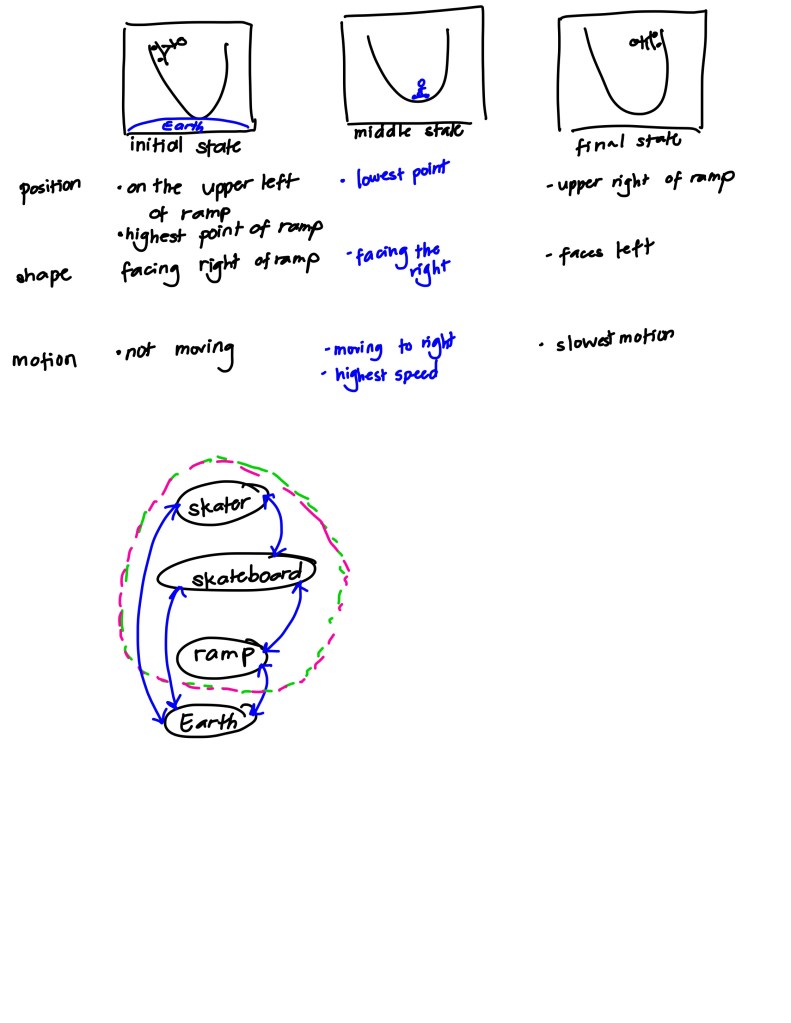 Earth
initial state
middle state
final state
position
• on the upper left
of ramp
• highest point of ramp
• lowest point
- upper right of ramp
shape
facing right of ramp
- facing the
right
- faces left
motion
• not moving
- moving to right
- highest speed
• slowest motion
skator
skateboard
ramp
Earth